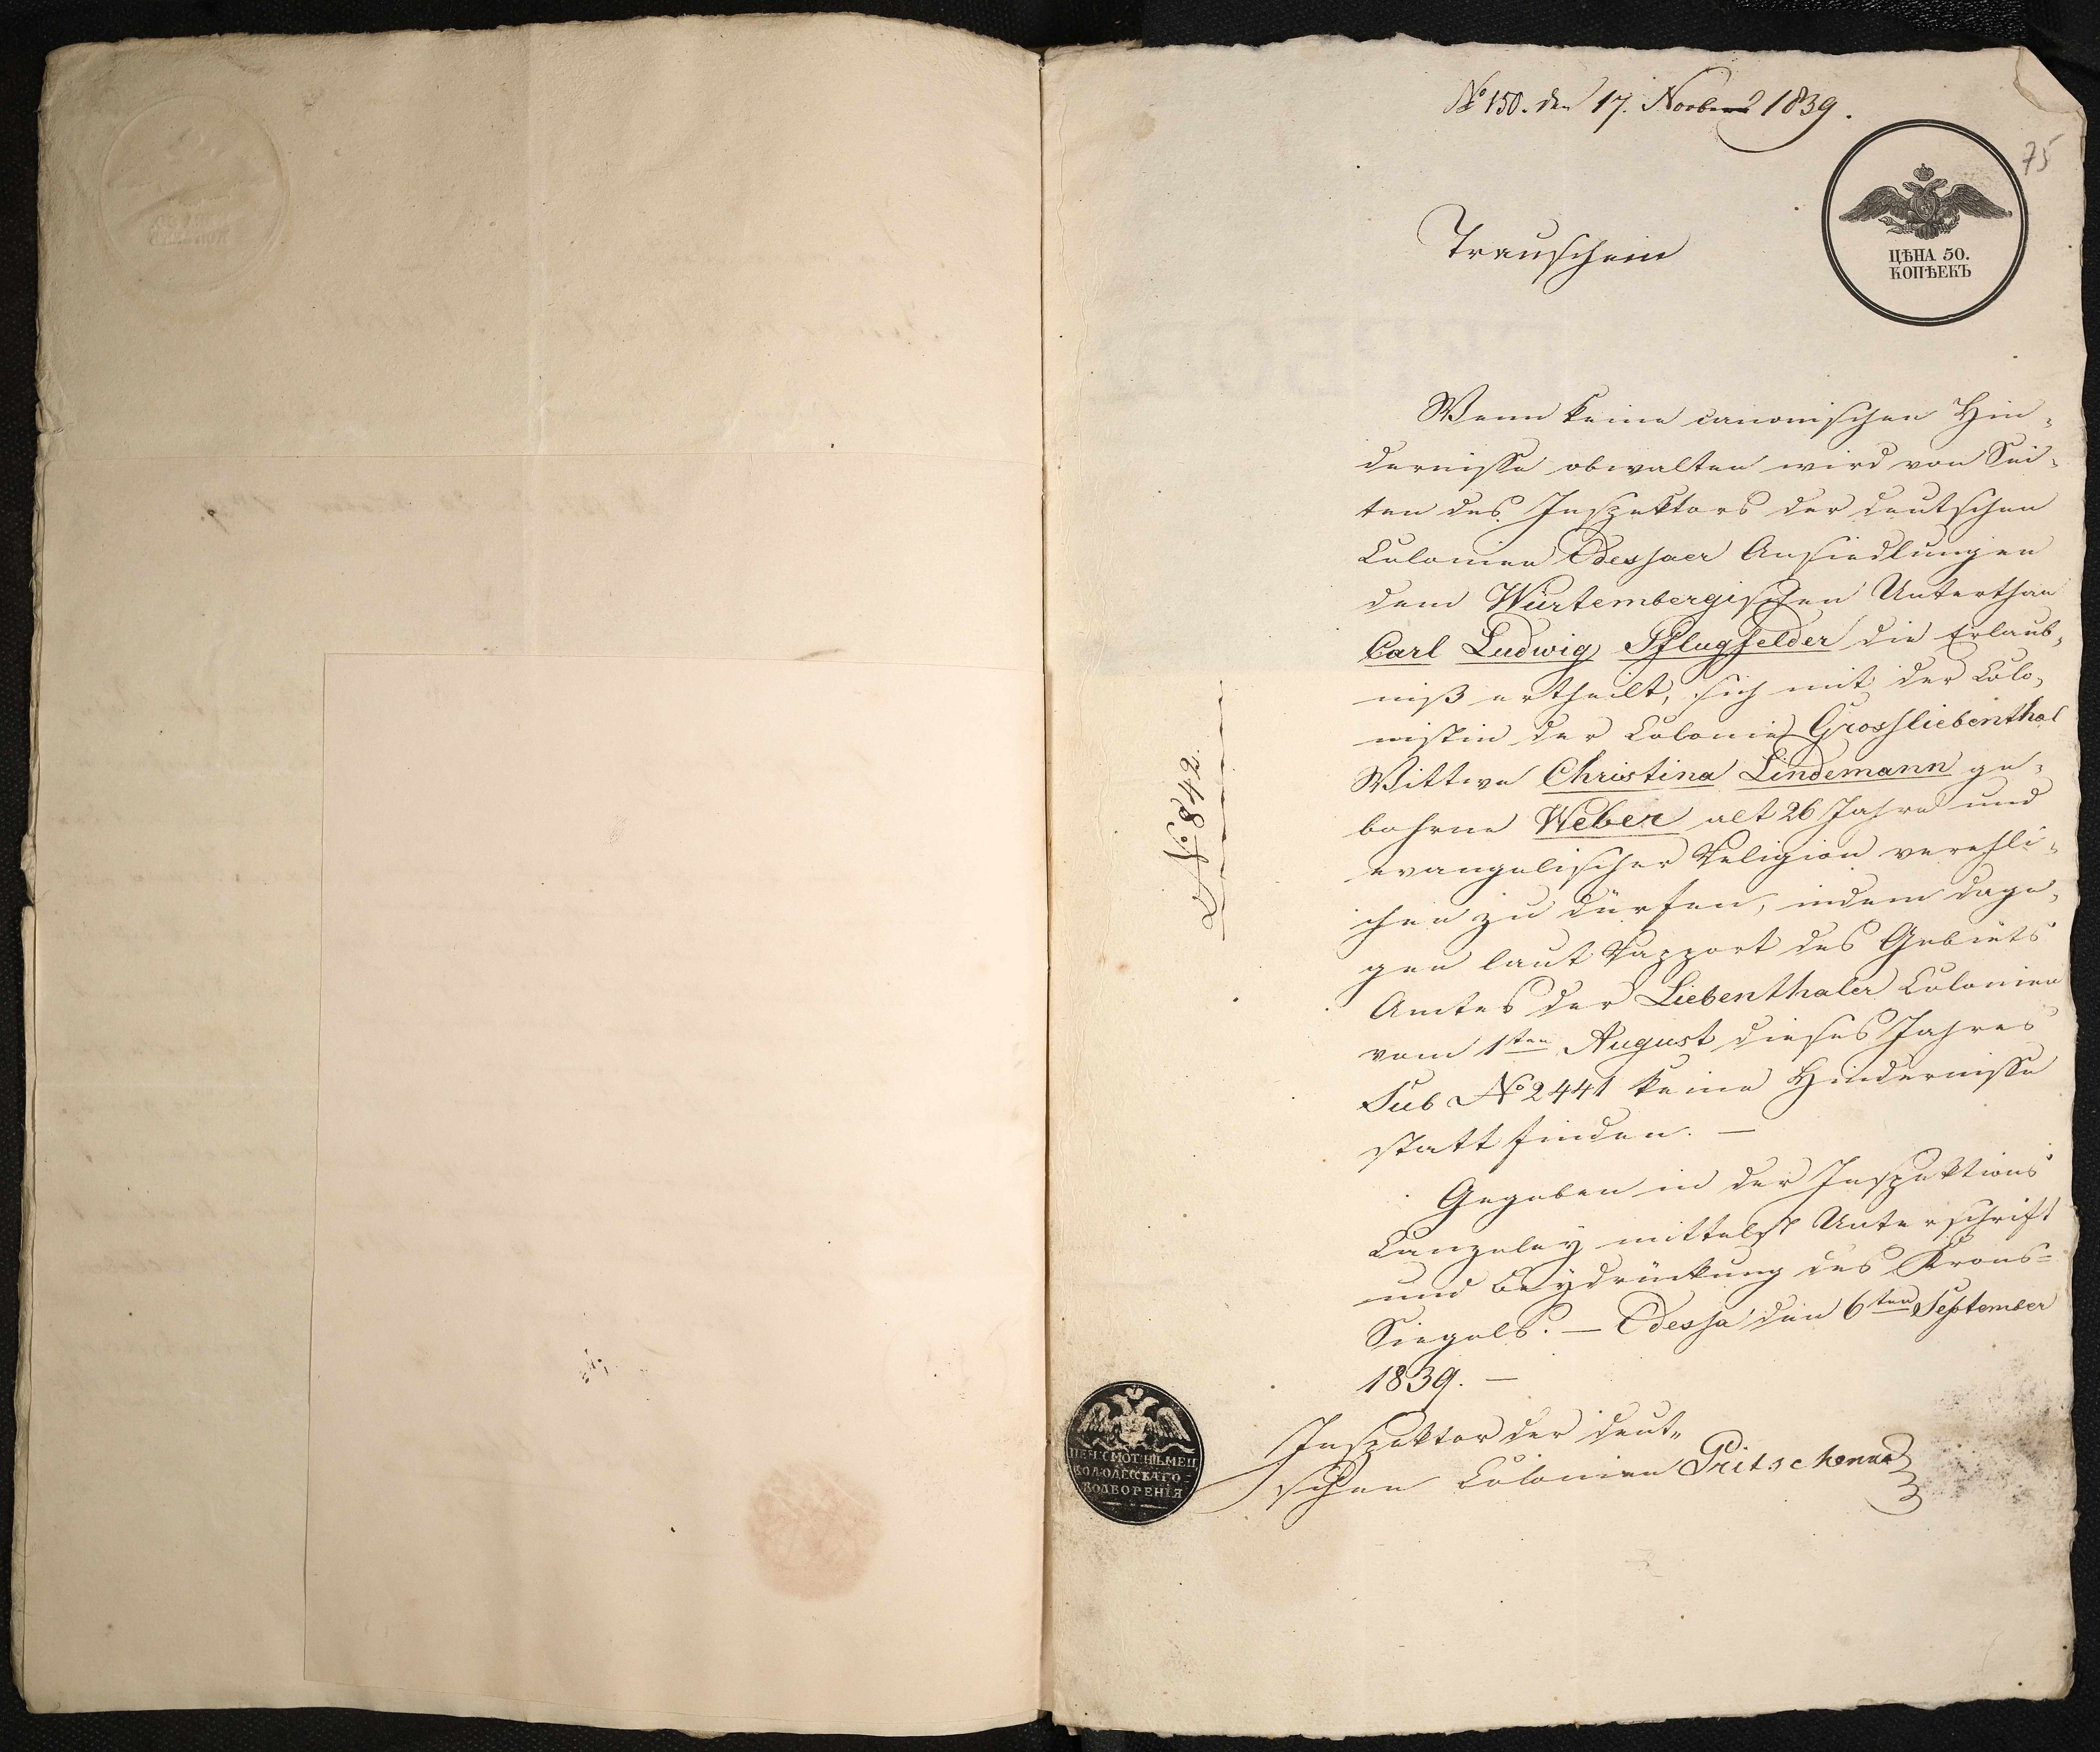 № 150. den 17. Novber 1839.
75
Trauschein
ЦѢНА 50.
КОПѢЕКЪ
Wenn keine canonischen Hin-
dernisse obwalten wird von Sei-
ten des Inspektors der deutschen
Colonien Odessaer Ansiedlungen
dem Würtembergischen Unterthan
Carl Ludwig Pflugfelder die Erlaub-
niß ertheilt, sich mit der Colo-
nistin der Colonie Grossliebenthal
Wittwe Christina Lindemann ge-
bohrne Weber alt 26 Jahre und
evangelischer Religion verehli-
chen zu dürfen, indem dage-
gen laut Rapport des Gebiets
Amtes der Liebenthaler Colonien
vom 1ten August dieses Jahres
Sub № 2441 keine Hindernisse
statt finden. —
Gegeben in der Inspektions
Canzeley mittelst Unterschrift
und Beydrückung des Krons-
Siegels. — Odessa den 6ten September
1839. —
Inspektor der deut-
schen Colonien
№ 842.
ВОДВОРЕНІЯ